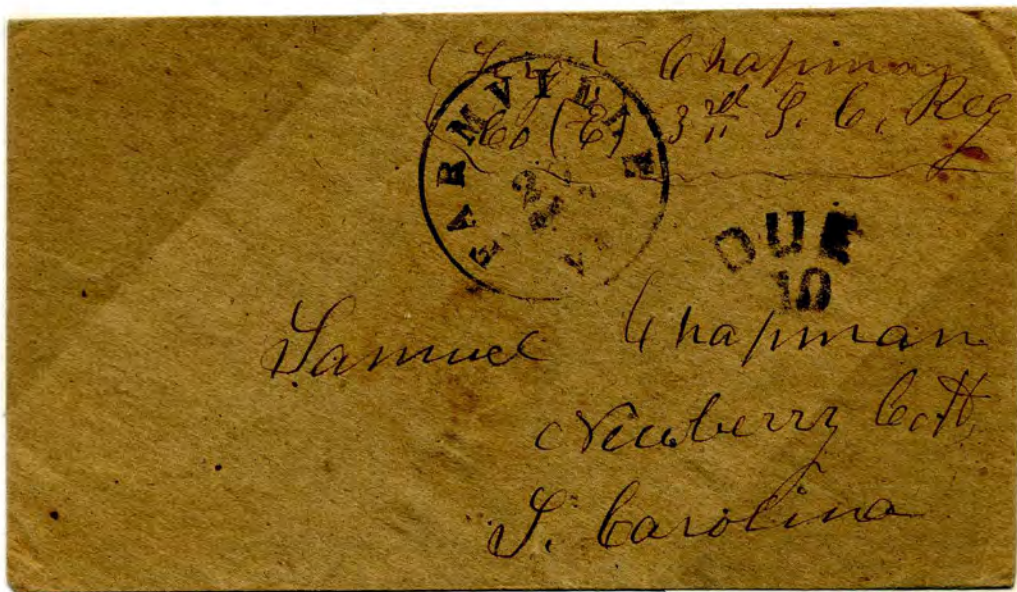 Chapman
Co (E) 3rd S. C. Reg
FARMVILLE
DUE
10
Samuel Chapman
Newberry C. H.
S. Carolina